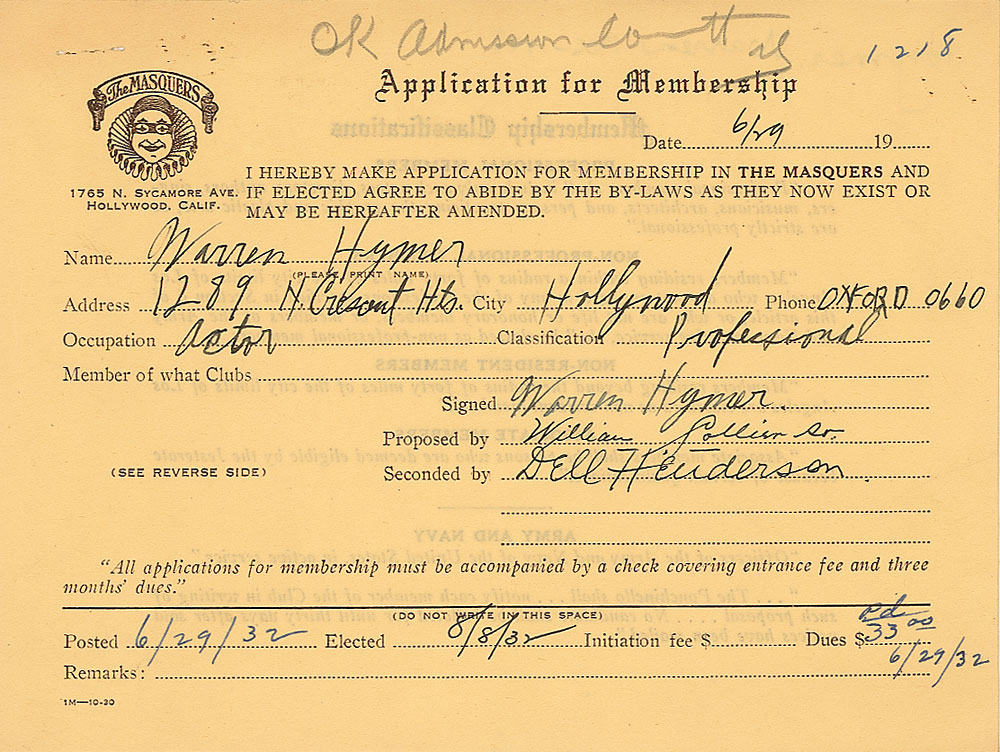 OK Admission Comtt
1218
The MASQUERS
Application for Membership
Date 6/29 19
1765 N. SYCAMORE AVE.
HOLLYWOOD, CALIF.
I HEREBY MAKE APPLICATION FOR MEMBERSHIP IN THE MASQUERS AND
IF ELECTED AGREE TO ABIDE BY THE BY-LAWS AS THEY NOW EXIST OR
MAY BE HEREAFTER AMENDED.
Name Warren Hymer
(PLEASE PRINT NAME)
Address 1289 N. Cresent Hts. City Hollywood Phone OXFORD 0660
Occupation Actor Classification Professional
Member of what Clubs
Signed Warren Hymer
Proposed by William Collier Sr.
(SEE REVERSE SIDE) Seconded by Dell Henderson
"All applications for membership must be accompanied by a check covering entrance fee and three
months' dues."
(DO NOT WRITE IN THIS SPACE)
Posted 6/29/32 Elected 8/8/32 Initiation fee $ Dues $ pd 33.00
6/29/32
Remarks:
1M—10-30